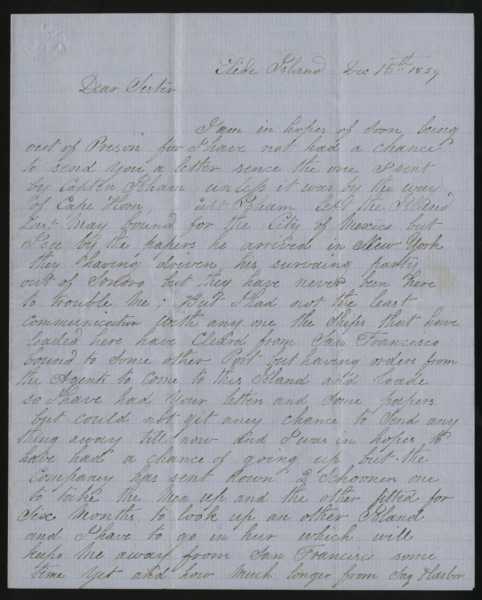 Elide Island Dec 15th 1859
Dear Sister
I am in hopes of soon being
out of Preson for I have not had a chance
to send you a letter sence the one I sent
by Capten Isham unless it was by the way
of Cape Horn Isham left the Island
last May bound for the City of Mexico but
I see by the papers he arrived in New York
they having driven his surveing party
out of but they have never ben here
to trouble me : But I had not the least
communication with any one the Ships that have
loaded here have Cleard from San Francisco
bound to Some other Port but having orders from
the Agent to come to this Island and loade
so I have had your letters and some papers
but could not git aney chance to Send any
thing away till now and I was in hopes to
have had a chance of going up but the
Compancy has sent down 2 Schooner one
to take the men up and the other for
Six Months to look up an other Island
and I have to go in hur which will
keep me away from San Francisco some
time yet and how much longer from Sag Harbor